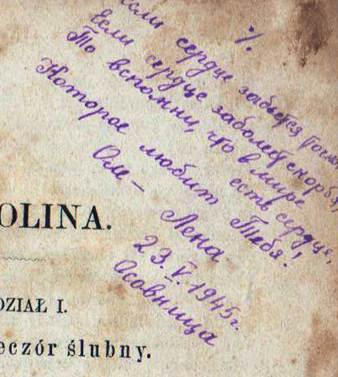 %.
Если сердце забьется
Если сердце заболет скорбя,
То вспомни, что в мире
есть сердце,
Которое любит Тебя!
Оле – Лена
23.V.1945г.
Осовница
OLINA.
DZIAŁ I.
eczór ślubny.